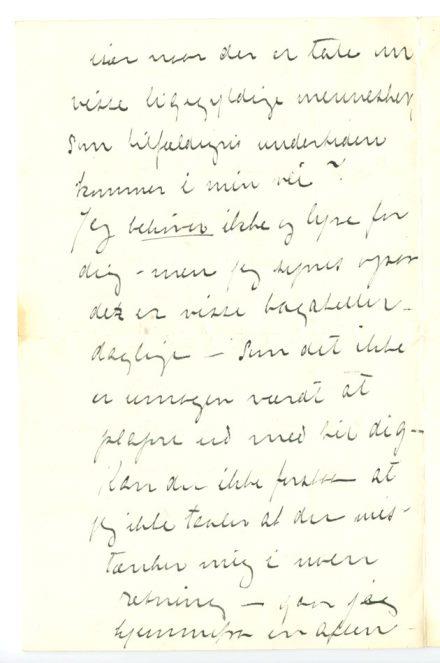 især naar der er tale om
visse ligegyldige mennesker,
som tilfældigvis undertiden
kommer i min vei ?
Jeg behøver ikke og lyve for
dig – men jeg synes
der er visse bagateller –
daglige – som det ikke
er umagen værdt at
plapre ud med til dig –
Kan du ikke forstaa at
jeg ikke taaler at du mis-
tænker mig i noen
retning – gaar jeg
hjemmefra en aften